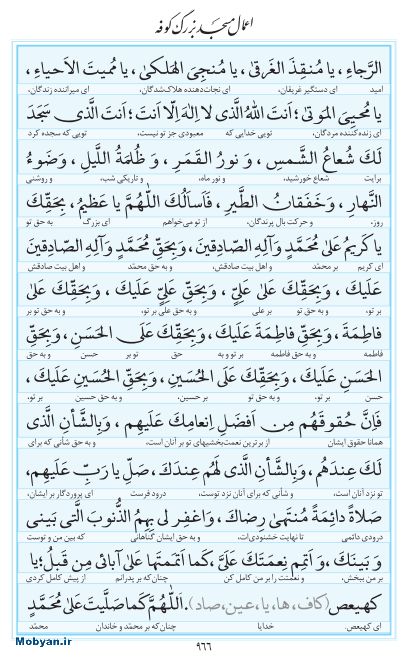 اعمال مسجد بزرگ کوفه
الرَّجاءِ، يا مُنقِذَ الغَرقىٰ، يا مُنجِيَ الهَلكىٰ، يا مُميتَ الاَحياءِ،
امید ای دستگیر غریقان، ای نجات‌دهنده هلاک‌شدگان، ای میراننده زندگان،
يا مُحيِيَ المَوتىٰ؛ اَنتَ اللهُ الَّذى لا اِلٰهَ اِلّا اَنتَ؛ اَنتَ الَّذى سَجَدَ
ای زنده‌کننده مردگان، تویی خدایی که معبودی جز تو نیست، تویی که سجده کرد
لَكَ شُعاعُ الشَّمسِ، وَ نورُ القَمَرِ، وَ ظُلمَةُ اللَّيلِ، وَ ضَوءُ
برایت شعاع خورشید، و نور ماه، و تاریکی شب، و روشنی
النَّهارِ، وَ خَفَقانُ الطَّيرِ، فَاَسأَلُكَ اللّٰهُمَّ يا عَظيمُ، بِحَقِّكَ
روز، و حرکت بال پرندگان، از تو می‌خواهم ای بزرگ به حق تو
يا كَريمُ عَلىٰ مُحَمَّدٍ وَآلِهِ الصّادِقينَ، وَبِحَقِّ مُحَمَّدٍ وَآلِهِ الصّادِقينَ
ای کریم بر محمّد و اهل بیت صادقش، و به حق محمّد و اهل بیت صادقش
عَلَيكَ، وَبِحَقِّكَ عَلىٰ عَلِيٍّ، وَبِحَقِّ عَلِيٍّ عَلَيكَ، وَبِحَقِّكَ عَلىٰ
بر تو، و به حق تو بر علی و به حق علی بر تو، و به حق تو بر
فاطِمَةَ، وَبِحَقِّ فاطِمَةَ عَلَيكَ، وَبِحَقِّكَ عَلَى الحَسَنِ، وَبِحَقِّ
فاطمه و به حق فاطمه بر تو و به حق تو بر حسن و به حق
الحَسَنِ عَلَيكَ، وَبِحَقِّكَ عَلَى الحُسَينِ، وَبِحَقِّ الحُسَينِ عَلَيكَ،
حسن بر تو، و به حق تو بر حسین، و به حق حسین بر تو،
فَاِنَّ حُقوقَهُم مِن اَفضَلِ اِنعامِكَ عَلَيهِم، وَبِالشَّأنِ الَّذى
همانا حقوق ایشان از برترین نعمت‌بخشیهای تو بر آنان است، و به حق شأنی که برای
لَكَ عِندَهُم، وَبِالشَّأنِ الَّذى لَهُم عِندَكَ، صَلِّ يا رَبِّ عَلَيهِم،
تو نزد آنان است، و شأنی که برای آنان نزد توست، درود فرست ای پروردگار بر ایشان،
صَلاةً دائِمَةً مُنتَهىٰ رِضاكَ، وَاغفِر لى بِهِمُ الذُّنوبَ الَّتى بَينى
درودی دائمی تا نهایت خشنودی‌ات، و به حق ایشان گناهانی که بین من و توست
وَ بَينَكَ، وَ اَتمِم نِعمَتَكَ عَلَيَّ، كَما اَتمَمتَها عَلىٰ آبائى مِن قَبلُ؛ يا
بر من ببخش، و نعمتت را بر من کامل کن چنان‌که بر پدرانم از پیش کامل کردی
كهيعص (كاف، ها، يا، عين، صاد). اَللّٰهُمَّ كَما صَلَّيتَ عَلىٰ مُحَمَّدٍ
ای کهیعص. خدایا چنان‌که بر محمّد و خاندان محمّد
۹۶۶
Mobyan.ir